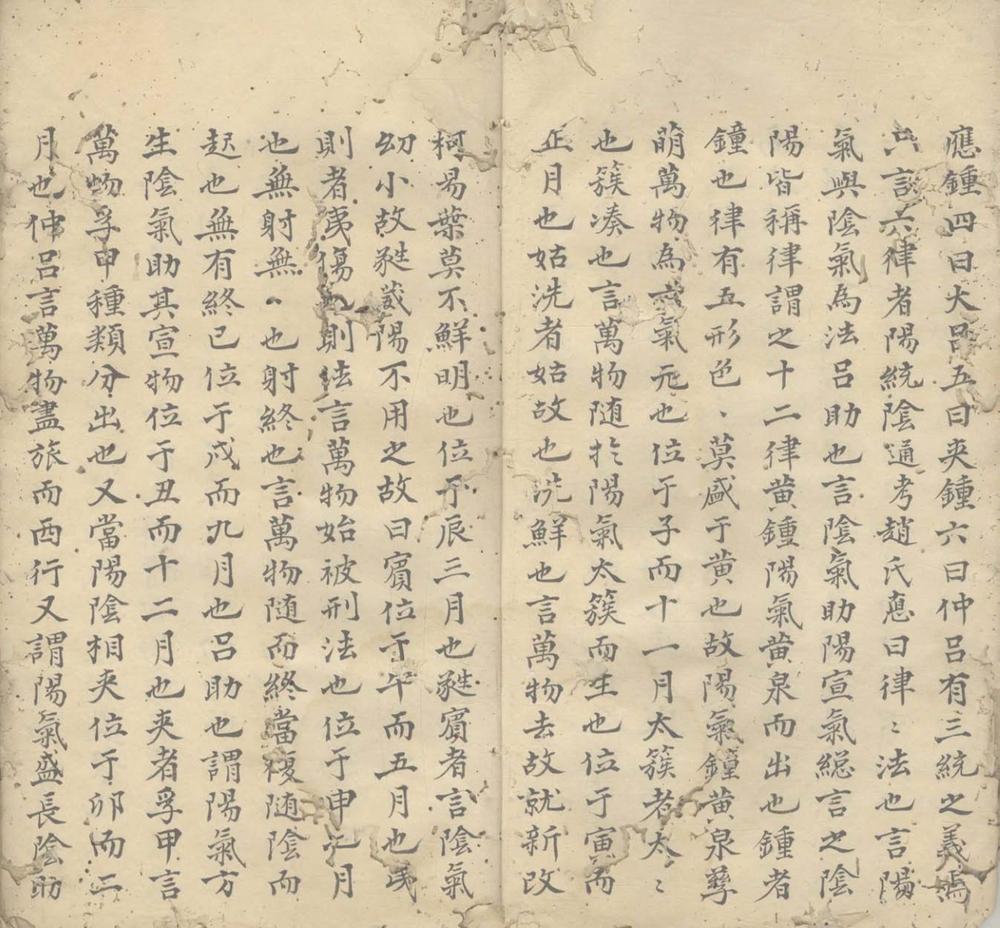 應鍾四曰大呂五曰夾鍾六曰仲呂有三統之義焉
只言六律者陽統陰通考趙氏惪曰律〻法也言陽
氣與陰氣為法呂助也言陰氣助陽宣氣総言之陰
陽皆稱律謂之十二律黃鍾陽氣黃泉而出也鍾者
鐘也律有五形色、莫盛于黃也故陽氣鐘黃泉孳
萌萬物為六氣元也位于子而十一月太簇者太〻
也簇凑也言萬物随扵陽氣太簇而生也位于寅而
正月也姑洗者姑故也洗鮮也言萬物去故就新改
柯易葉莫不鮮明也位于辰三月也蕤賓者言陰氣
幼小故蕤葳陽不用之故曰賓位于午而五月也夷
則者夷傷也則法言萬物始被刑法也位于申七月
也無射無、也射終也言萬物随而終當複随陰而
起也無有終已位于戍而九月也呂助也謂陽氣方
生陰氣助其宣物位于丑而十二月也夾者孚甲言
萬物孚甲種類分出也又當陽陰相夾位于卯而二
月也仲呂言萬物盡旅而西行又謂陽氣盛長陰助